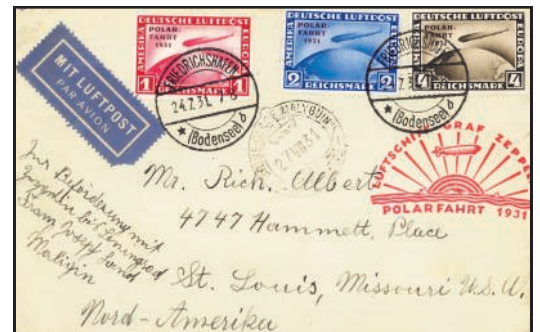 DEUTSCHE LUFTPOST
POLAR-
FAHRT
1931
AMERIKA
EUROPA
1
REICHSMARK
1
DEUTSCHE LUFTPOST
POLAR-
FAHRT
1931
AMERIKA
EUROPA
2
REICHSMARK
2
DEUTSCHE LUFTPOST
POLAR-
FAHRT
1931
AMERIKA
EUROPA
4
REICHSMARK
4
MIT LUFTPOST
PAR AVION
FRIEDRICHSHAFEN
24.7.31.
(Bodensee)
(Bodensee)
LUFTSCHIFF GRAF
POLARFAHRT 1931
Zur Beförderung mit
bis Leningrad
Malygin
Mr. Rich. Albert
4747 Hammett, Place
St. Louis, Missouri U.S.A.
Nord-Amerika